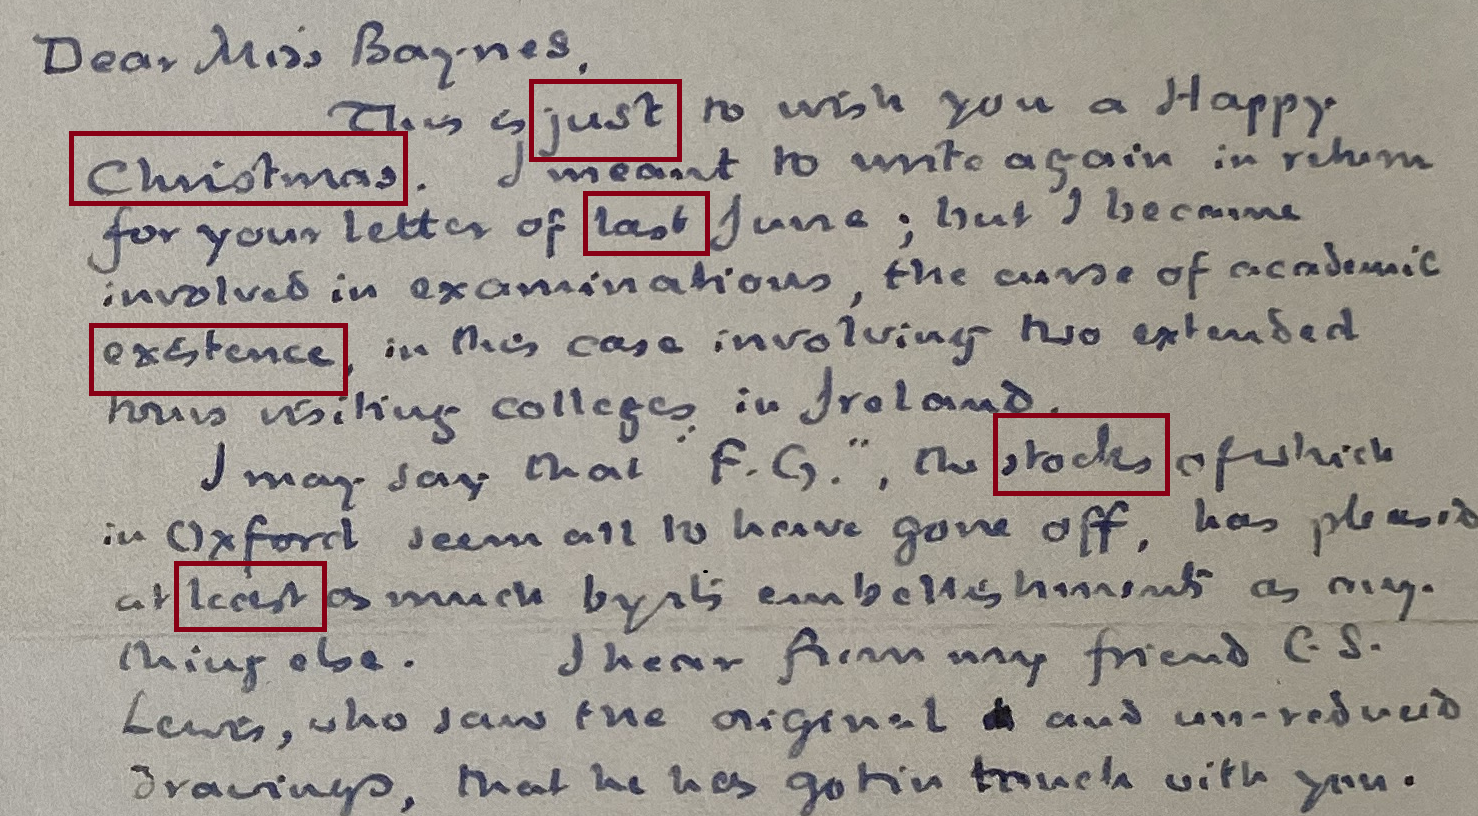 Dear Miss Baynes,
This is just to wish you a Happy
Christmas. I meant to write again in return
for your letter of last June; but I became
involved in examinations, the curse of academic
existence, in this case involving two extended
hours visiting colleges in Ireland.
I may say that "F.G.", the stocks of which
in Oxford seem all to have gone off, has pleased
at least as much by its embellishments as any-
thing else. I hear from my friend C.S.
Lewis, who saw the original and un-reduced
drawings, that he has got in touch with you.